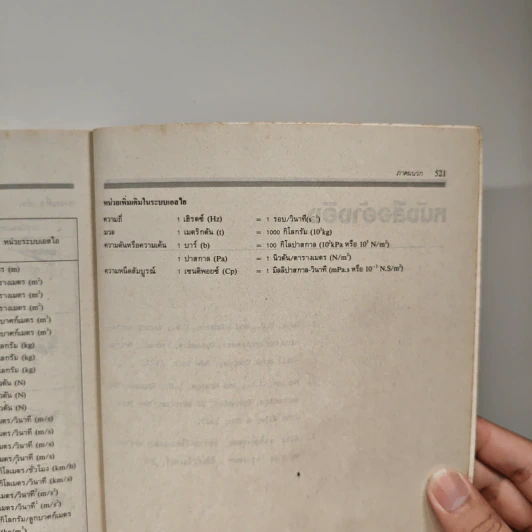 ภาคผนวก 521
หน่วยเพิ่มเติมในระบบเอสไอ
ความถี่ 1 เฮิรตซ์ (Hz) = 1 รอบ/วินาที(s⁻¹)
มวล 1 เมตริกตัน (t) = 1000 กิโลกรัม (10³kg)
ความดันหรือความเค้น 1 บาร์ (b) = 100 กิโลปาสกาล (10²kPa หรือ 10⁵ N/m²)
1 ปาสกาล (Pa) = 1 นิวตัน/ตารางเมตร (N/m²)
ความหนืดสัมบูรณ์ 1 เซนติพอยซ์ (Cp) = 1 มิลลิปาสกาล-วินาที (mPa.s หรือ 10⁻³ N.S/m²)
หน่วยระบบเอสไอ
(m)
(m²)
(m²)
(m²)
(m³)
(m³)
(kg)
(kg)
(kg)
(N)
(N)
(N)
เมตร/วินาที (m/s)
เมตร/วินาที (m/s)
เมตร/วินาที (m/s)
เมตร/วินาที (m/s)
กิโลเมตร/ชั่วโมง (km/h)
กิโลเมตร/วินาที (km/s)
เมตร/วินาที² (m/s²)
เมตร/วินาที² (m/s²)
กิโลกรัม/ลูกบาศก์เมตร
(kg/m³)